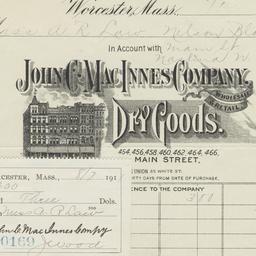 Worcester, Mass.,
Miss A R Law Nelson
In Account with Main St
JOHN C. MACINNES COMPANY,
WHOLESALE & RETAIL
DRY GOODS.
454, 456, 458, 460, 462, 464, 466,
MAIN STREET,
UNION AS WHITE ST.
TY DAYS FROM DATE OF PURCHASE.
ENCE TO THE COMPANY 3 00
CESTER, MASS., 8/7 191
Three Dols.
Miss A R Law
John C. MacInnes Compy
0169 Wood